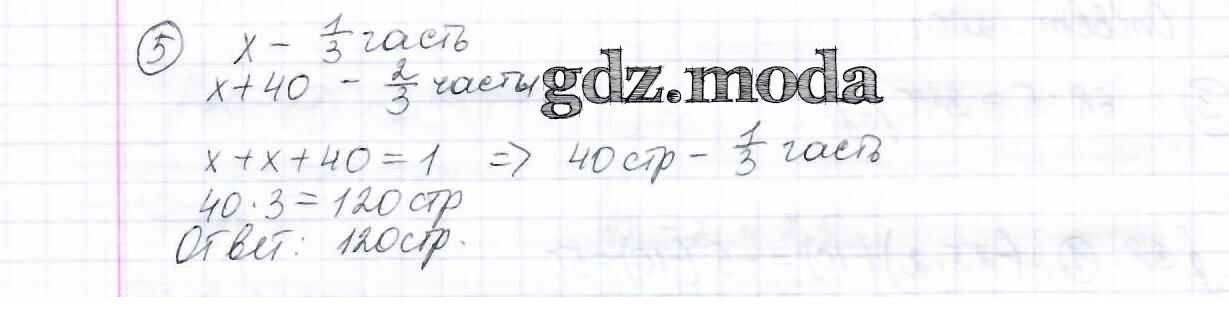 5 x - 1/3 часть
x+40 - 2/3 часты
gdz.moda
x+x+40=1 => 40стр - 1/3 часть
40·3=120стр
Ответ: 120стр.